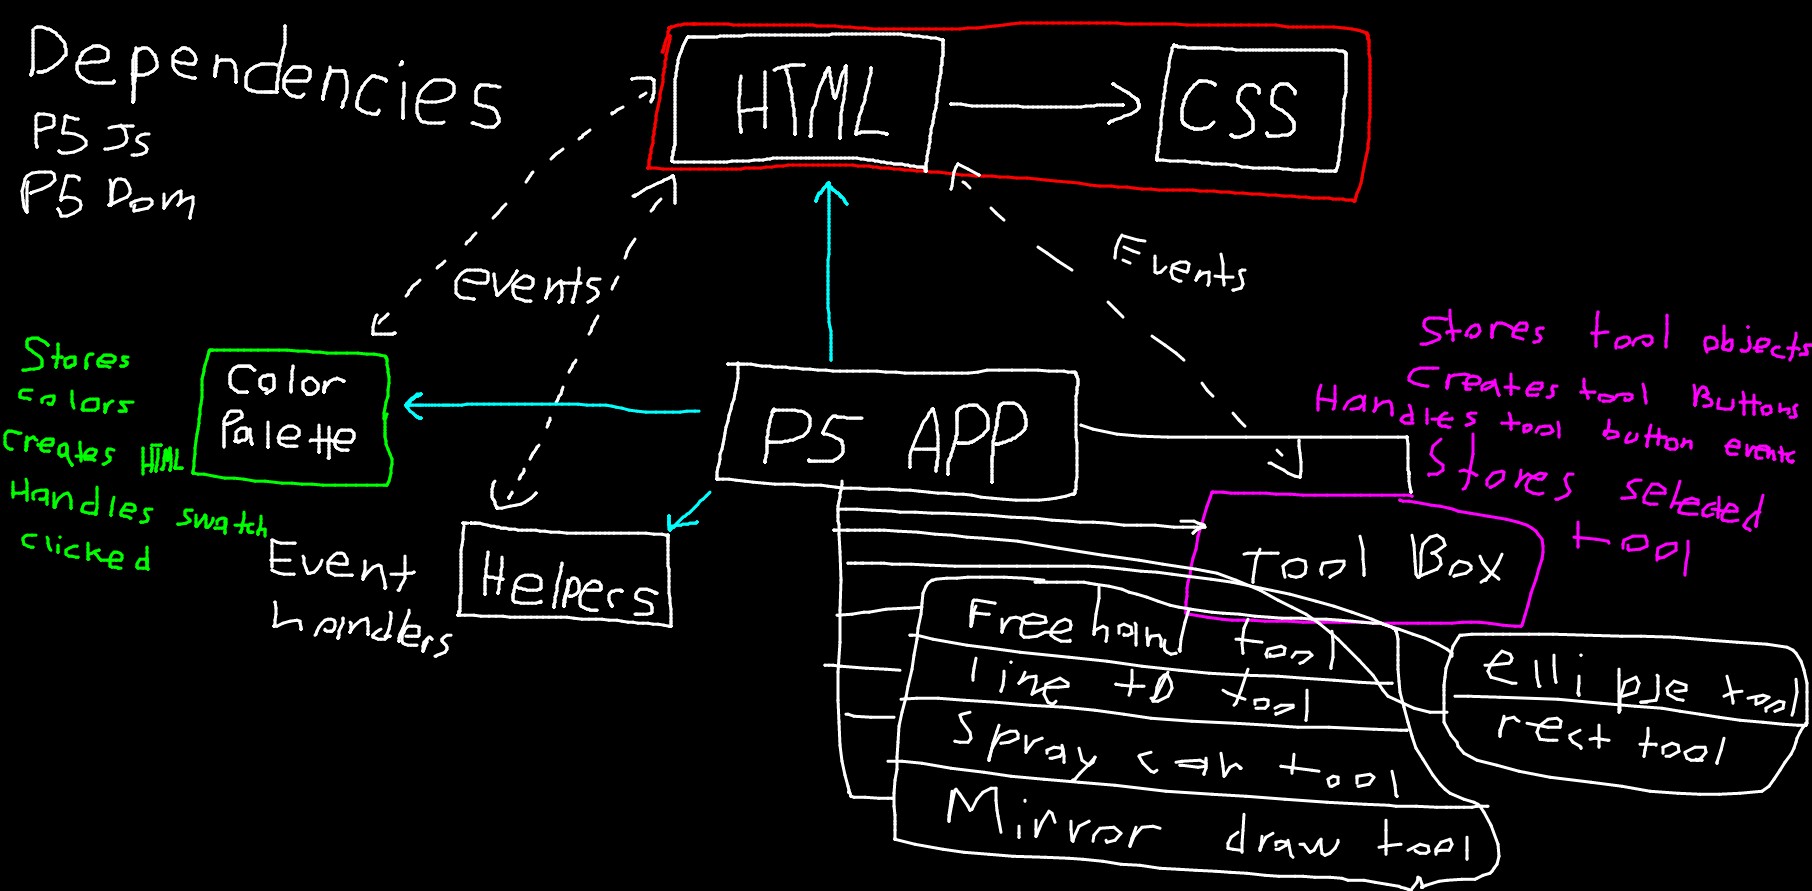 Dependencies
P5 Js
P5 Dom
HTML
CSS
events
Events
Stores
colors
creates HTML
Handles swatch
clicked
Color
Palette
P5 APP
Stores tool objects
Creates tool Buttons
Handles tool button events
Stores selected
tool
Event
handlers
Helpers
Tool Box
Free hand tool
line to tool
Spray can tool
Mirror draw tool
ellipse tool
rect tool